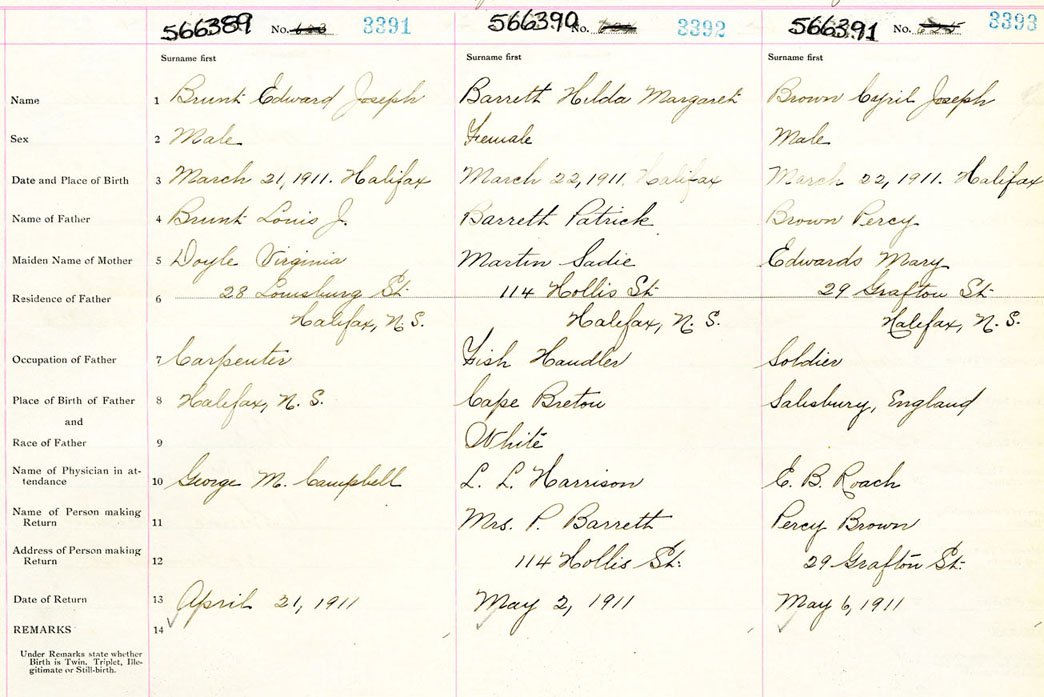 566389 No. 3391 566390 No. 3392 566391 No. 3393
Surname first Surname first Surname first
Name 1 Brunt Edward Joseph Barrett Hilda Margaret Brown Cyril Joseph
Sex 2 Male Female Male
Date and Place of Birth 3 March 21, 1911. Halifax March 22, 1911. Halifax March 22, 1911. Halifax
Name of Father 4 Brunt Louis J. Barrett Patrick Brown Percy
Maiden Name of Mother 5 Doyle Virginia Martin Sadie Edwards Mary
Residence of Father 6 28 Louisburg St. 114 Hollis St. 29 Grafton St.
Halifax, N.S. Halifax, N.S. Halifax, N.S.
Occupation of Father 7 Carpenter Fish Handler Soldier
Place of Birth of Father 8 Halifax, N.S. Cape Breton Salisbury, England
and
Race of Father 9 White
Name of Physician in at-
tendance 10 George M. Campbell L. L. Harrison E. B. Roach
Name of Person making
Return 11 Mrs. P. Barrett Percy Brown
Address of Person making
Return 12 114 Hollis St. 29 Grafton St.
Date of Return 13 April 21, 1911 May 2, 1911 May 6, 1911
REMARKS 14
Under Remarks state whether
Birth is Twin, Triplet, Ille-
gitimate or Still-birth.